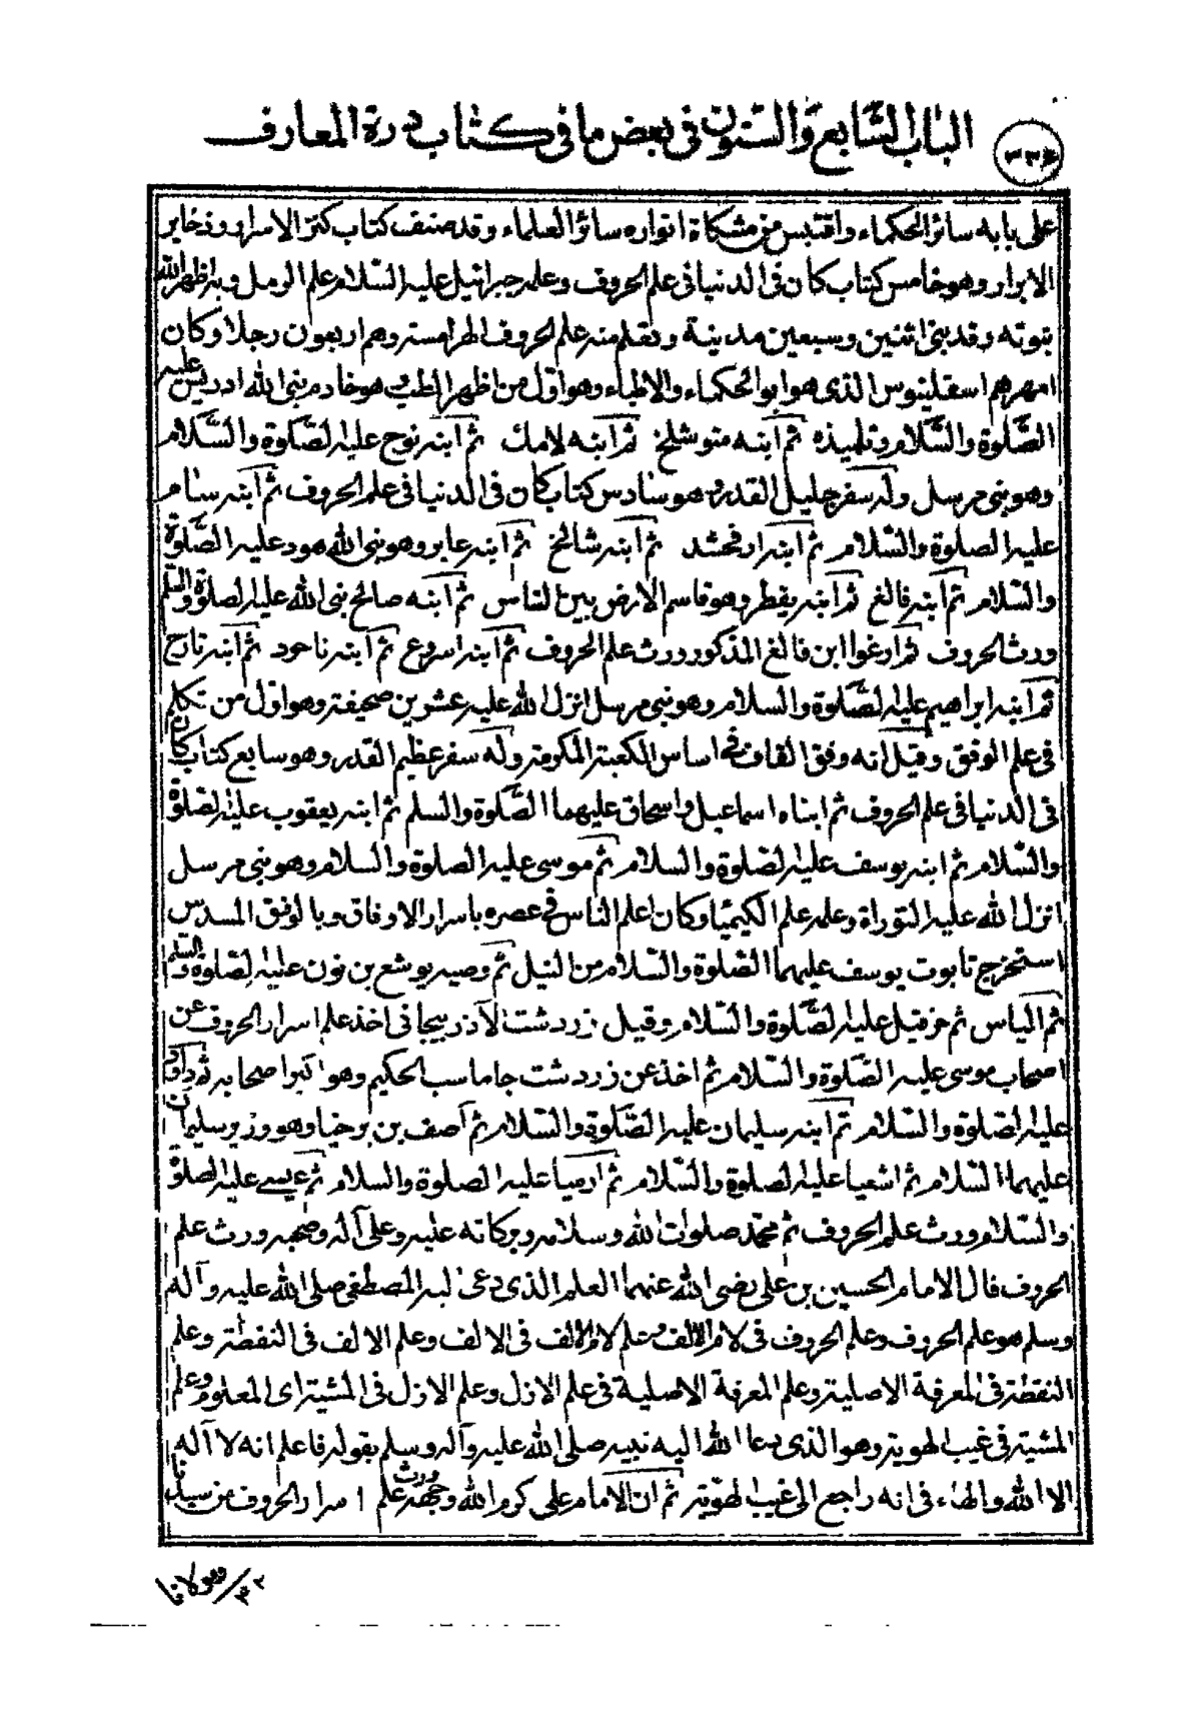 الباب السابع والستون في بعض ما في كتاب درة المعارف
٣٣٤
على بابه سائر الحكماء واقتبس من مشكاة انواره سائر العلماء وقد صنف كتاب كنز الاسرار وذخاير
الابرار وهو خامس كتاب كان في الدنيا في علم الحروف وعلمه جبرائيل عليه السّلام علم الرمل وبه اظهر الله
نبوته وقد بنى اثنين وسبعين مدينة وتعلم منه علم الحروف الهرامسة وهم اربعون رجلا وكان
امهرهم اسقلينوس الذى هو ابو الحكماء والاطباء وهو اول من اظهر الطب وهو خادم نبى الله ادريس عليه
الصّلوة والسّلام وتلميذه ثم ابنه متوشلخ ثم ابنه لامك ثم ابنه نوح عليه الصّلوة والسّلام
وهو نبى مرسل وله سفر جليل القدر وهو سادس كتاب كان في الدنيا في علم الحروف ثم ابنه سام
عليه الصلوة والسّلام ثم ابنه ارفحشد ثم ابنه شالخ ثم ابنه عابر وهو نبى الله هود عليه الصّلوة
والسّلام ثم ابنه فالغ ثم ابنه يقطر وهو قاسم الارض بين الناس ثم ابنه صالح نبى الله عليه الصلوة والسلم
ورث الحروف ثم ارغوا ابن فالغ المذكور ورث علم الحروف ثم ابنه اسروع ثم ابنه ناحود ثم ابنه تارح
ثم ابنه ابراهيم عليه الصّلوة والسلام وهو نبى مرسل انزل الله عليه عشرين صحيفة وهو اول من تكلم
في علم الوفق وقيل انه وفق القاف في اساس الكعبة المكرمة وله سفر عظيم القدر وهو سابع كتاب كان
في الدنيا في علم الحروف ثم ابناه اسماعيل واسحاق عليهما الصّلوة والسلم ثم ابنه يعقوب عليه الصلوة
والسّلام ثم ابنه يوسف عليه الصّلوة والسلام ثم موسى عليه الصلوة والسلام وهو نبى مرسل
انزل الله عليه التوراة وعلمه علم الكيميا وكان اعلم الناس في عصره باسرار الاوفاق وبالوفق المسدس
استخرج تابوت يوسف عليهما الصّلوة والسّلام من النيل ثم وصيه يوشع بن نون عليه الصلوة والسلم
ثم الياس ثم حزقيل عليه الصّلوة والسّلام وقيل زردشت الآذربيجانى اخذ علم اسرار الحروف عن
اصحاب موسى عليه الصّلوة والسّلام ثم اخذ عن زردشت جاماسب الحكيم وهو اكبر اصحابه ثم داود
عليه الصلوة والسّلام ثم ابنه سليمان عليه الصّلوة والسّلام ثم آصف بن برخيا وهو وزير سليمان
عليهما السّلام ثم اشعيا عليه الصلوة والسّلام ثم ارميا عليه الصلوة والسلام ثم عيسى عليه الصلوة
والسّلام ورث علم الحروف ثم محمد صلوات الله وسلامه وبركاته عليه وعلى آله وصحبه ورث علم
الحروف قال الامام الحسين بن على رضى الله عنهما العلم الذى دعى اليه المصطفى صلى الله عليه وآله
وسلم هو علم الحروف وعلم الحروف في لام الالف وعلم لام الالف في الالف وعلم الالف في النقطة وعلم
النقطة في المعرفة الاصلية وعلم المعرفة الاصلية في علم الازل وعلم الازل في المشية اى المعلوم وعلم
المشية في غيب الهوية وهو الذى دعا الله اليه نبيه صلى الله عليه وآله وسلم بقوله فاعلم انه لا آله
الا الله والهاء في انه راجع الى غيب الهوية ثم ان الامام على كرم الله وجهه ورث علم اسرار الحروف من سيدنا
ومولانا